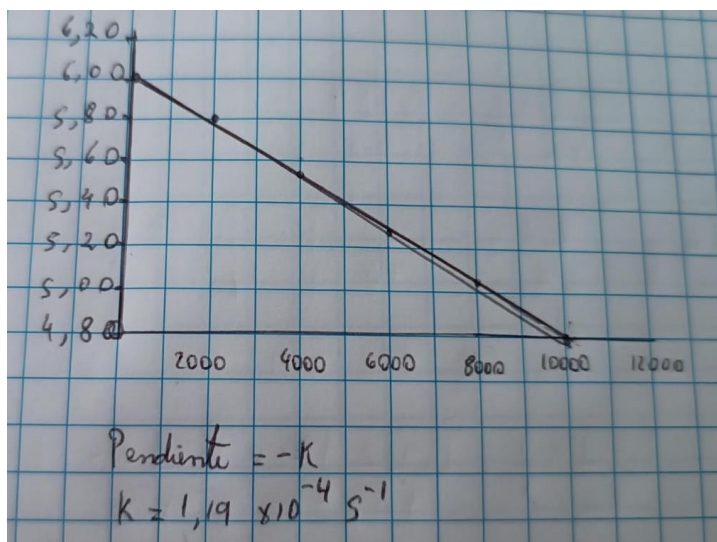 6,20
6,00
5,80
5,60
5,40
5,20
5,00
4,80
2000 4000 6000 8000 10000 12000
Pendiente = -K
K = 1,19 x10⁻⁴ S⁻¹